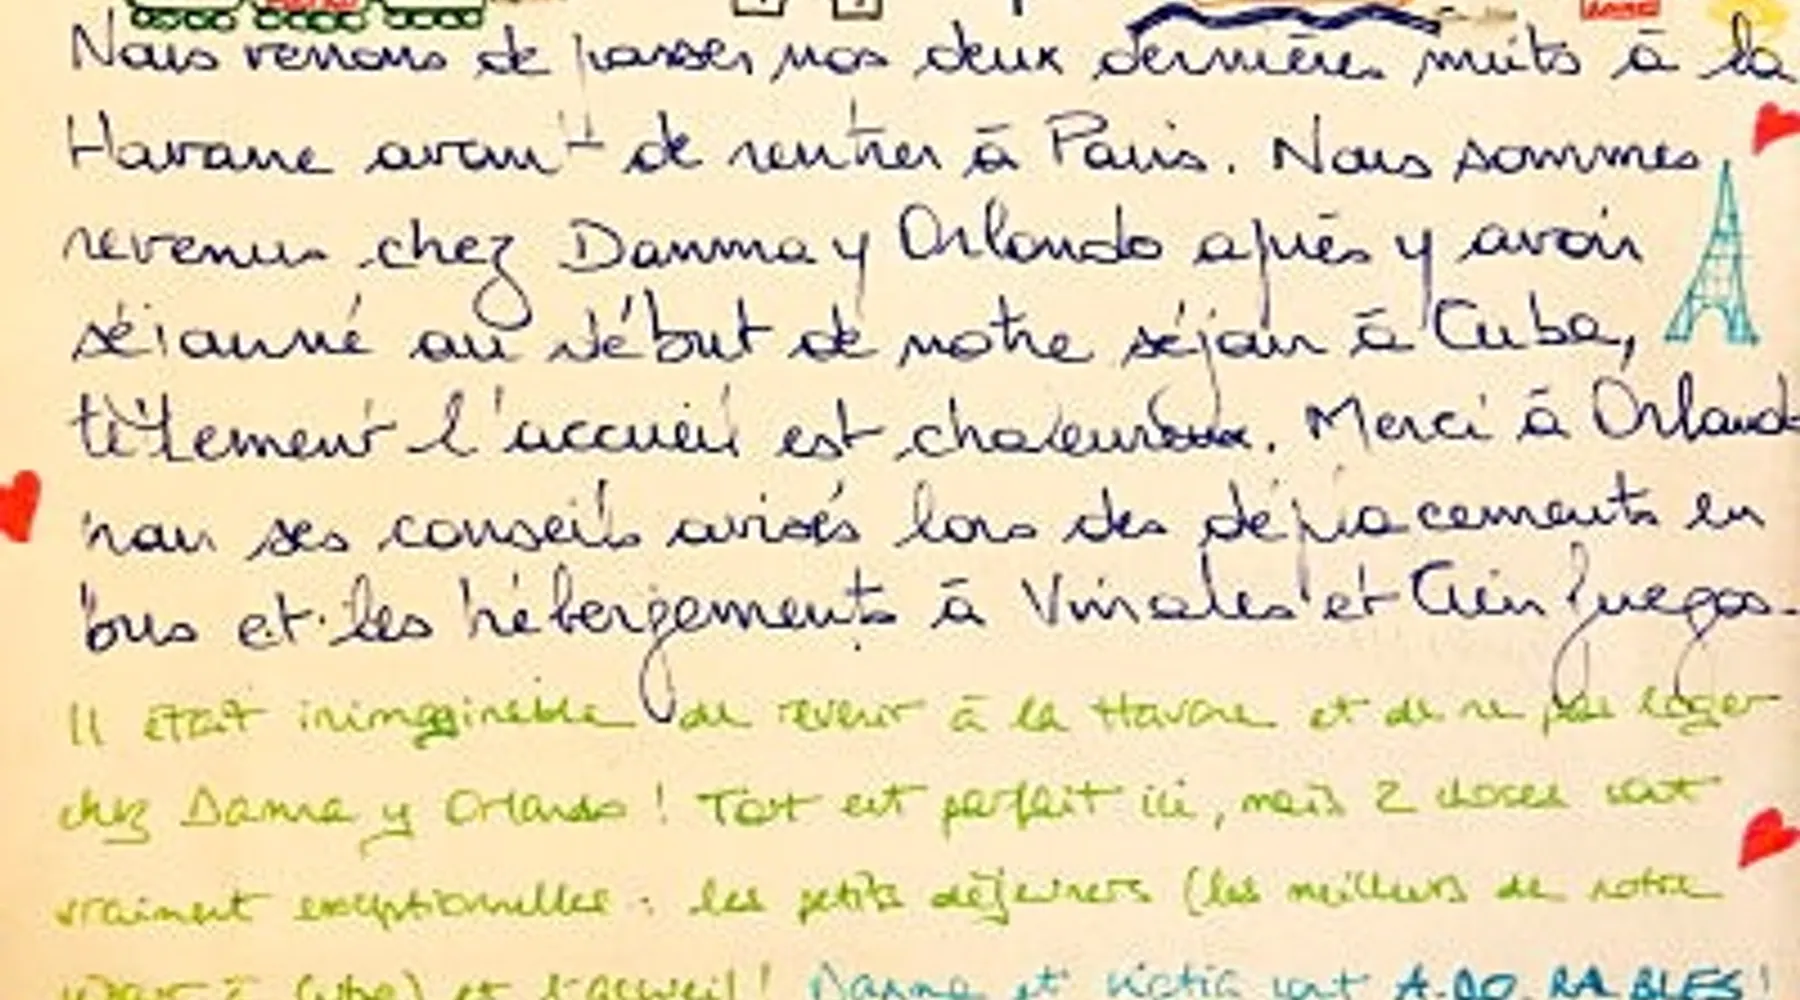 Nous venons de passer nos deux dernières nuits à la
Havane avant de rentrer à Paris. Nous sommes
revenus chez Danma y Orlando après y avoir
séjourné au début de notre séjour à Cuba,
tellement l'accueil est chaleureux. Merci à Orlando
pour ses conseils avisés lors des déplacements en
bus et les hébergements à Vinales et Cien fuegos.
Il était inimaginable de revenir à la Havane et de ne pas loger
chez Danma y Orlando ! Tout est parfait ici, mais 2 choses sont
vraiment exceptionnelles : les petits déjeuners (les meilleurs de notre
séjour à Cuba) et l'accueil ! Danma et sont A-DO-RA-BLES !